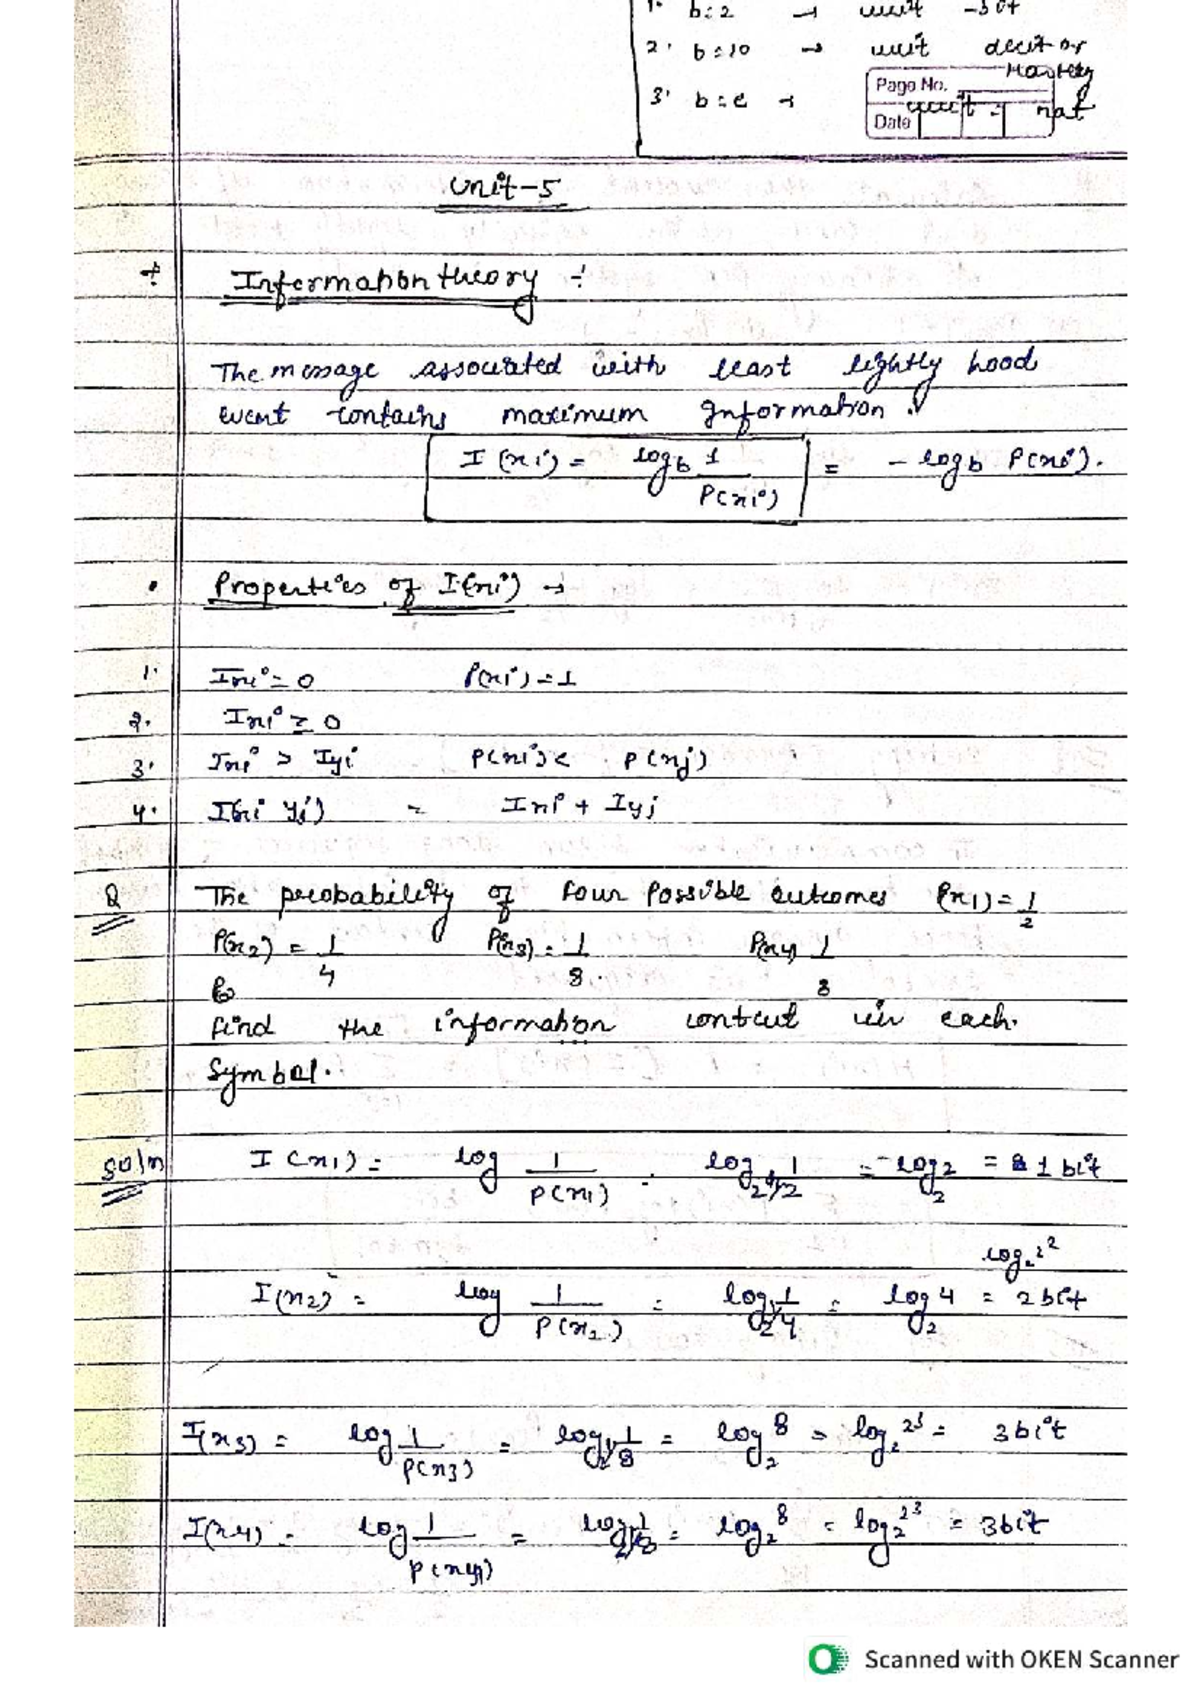 1. b=2 → unit - bit
2. b=10 → unit decit or Hartley
3. b=e → unit = nat
Page No.
Date
Unit-5
÷ Information theory ÷
The message associated with least lightly hood
event contains maximum Information.
I(xi) = log_b 1/P(xi) = - log_b P(xi).
• Properties of I(xi) →
1. Ixi = 0 P(xi) = 1
2. Ixi ≥ 0
3. Ixi > Iyi P(xi) < P(xj)
4. I(xi yj) = Ixi + Iyj
Q The probability of four possible outcomes P(x1) = 1/2
P(x2) = 1/4 P(x3) = 1/8. P(x4) 1/8
find the information content in each.
Symbol.
Soln I(x1) = log 1/P(x1) . log_2 1/1/2 = -log_2 2 = 1 bit
log_2 2^2
I(x2) = log 1/P(x2) = log_2 1/1/4 = log_2 4 = 2 bit
I(x3) = log 1/P(x3) = log_2 1/1/8 = log_2 8 = log_2 2^3 = 3 bit
I(x4) = log 1/P(x4) = log_2 1/1/8 = log_2 8 = log_2 2^3 = 3bit
Scanned with OKEN Scanner